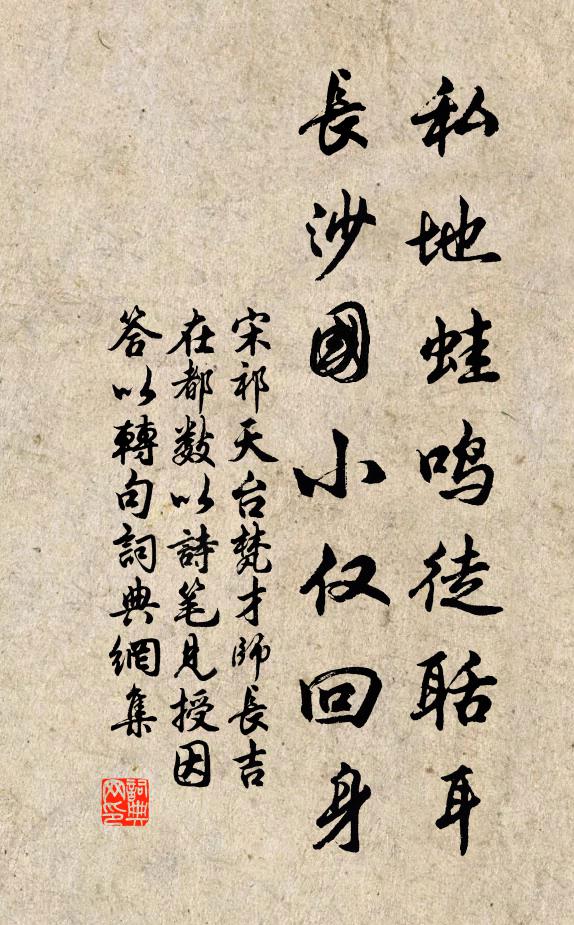 私地蛙鸣徒聒耳
長沙國小仅回身
宋祁天台梵才師長吉
在都数以詩笔見授因
答以轉句詞典網集
詞典
网印